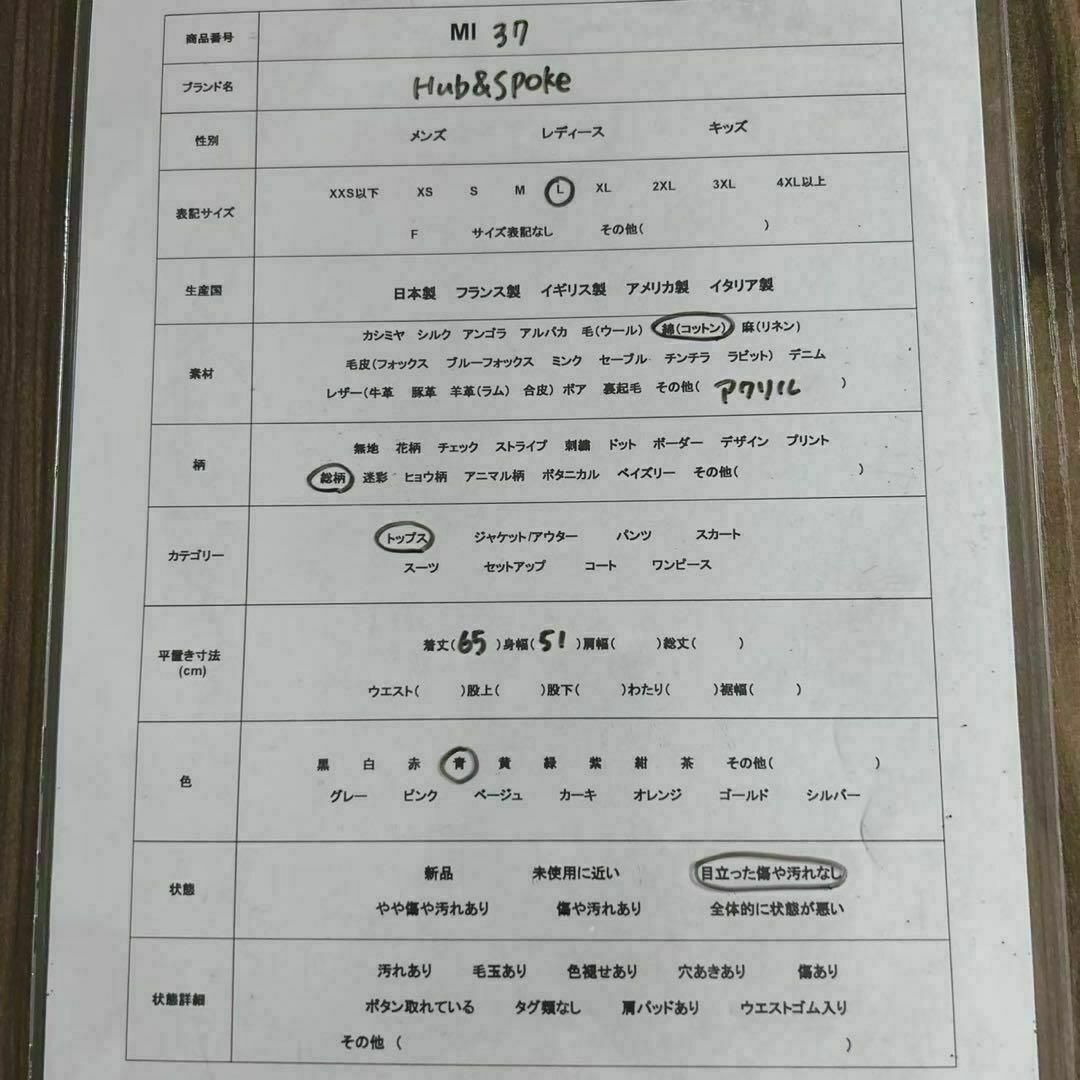 商品番号 MI 37
ブランド名 Hub&Spoke
性別 メンズ レディース キッズ
表記サイズ
XXS以下 XS S M L XL 2XL 3XL 4XL以上
F サイズ表記なし その他( )
生産国 日本製 フランス製 イギリス製 アメリカ製 イタリア製
素材
カシミヤ シルク アンゴラ アルパカ 毛(ウール) 綿(コットン) 麻(リネン)
毛皮(フォックス ブルーフォックス ミンク セーブル チンチラ ラビット) デニム
レザー(牛革 豚革 羊革(ラム) 合皮) ボア 裏起毛 その他( アクリル )
柄
無地 花柄 チェック ストライプ 刺繍 ドット ボーダー デザイン プリント
総柄 迷彩 ヒョウ柄 アニマル柄 ボタニカル ペイズリー その他( )
カテゴリー
トップス ジャケット/アウター パンツ スカート
スーツ セットアップ コート ワンピース
平置き寸法
(cm)
着丈( 65 )身幅( 51 )肩幅( )総丈( )
ウエスト( )股上( )股下( )わたり( )裾幅( )
色
黒 白 赤 青 黄 緑 紫 紺 茶 その他( )
グレー ピンク ベージュ カーキ オレンジ ゴールド シルバー
状態
新品 未使用に近い 目立った傷や汚れなし
やや傷や汚れあり 傷や汚れあり 全体的に状態が悪い
状態詳細
汚れあり 毛玉あり 色褪せあり 穴あきあり 傷あり
ボタン取れている タグ類なし 肩パッドあり ウエストゴム入り
その他 ( )